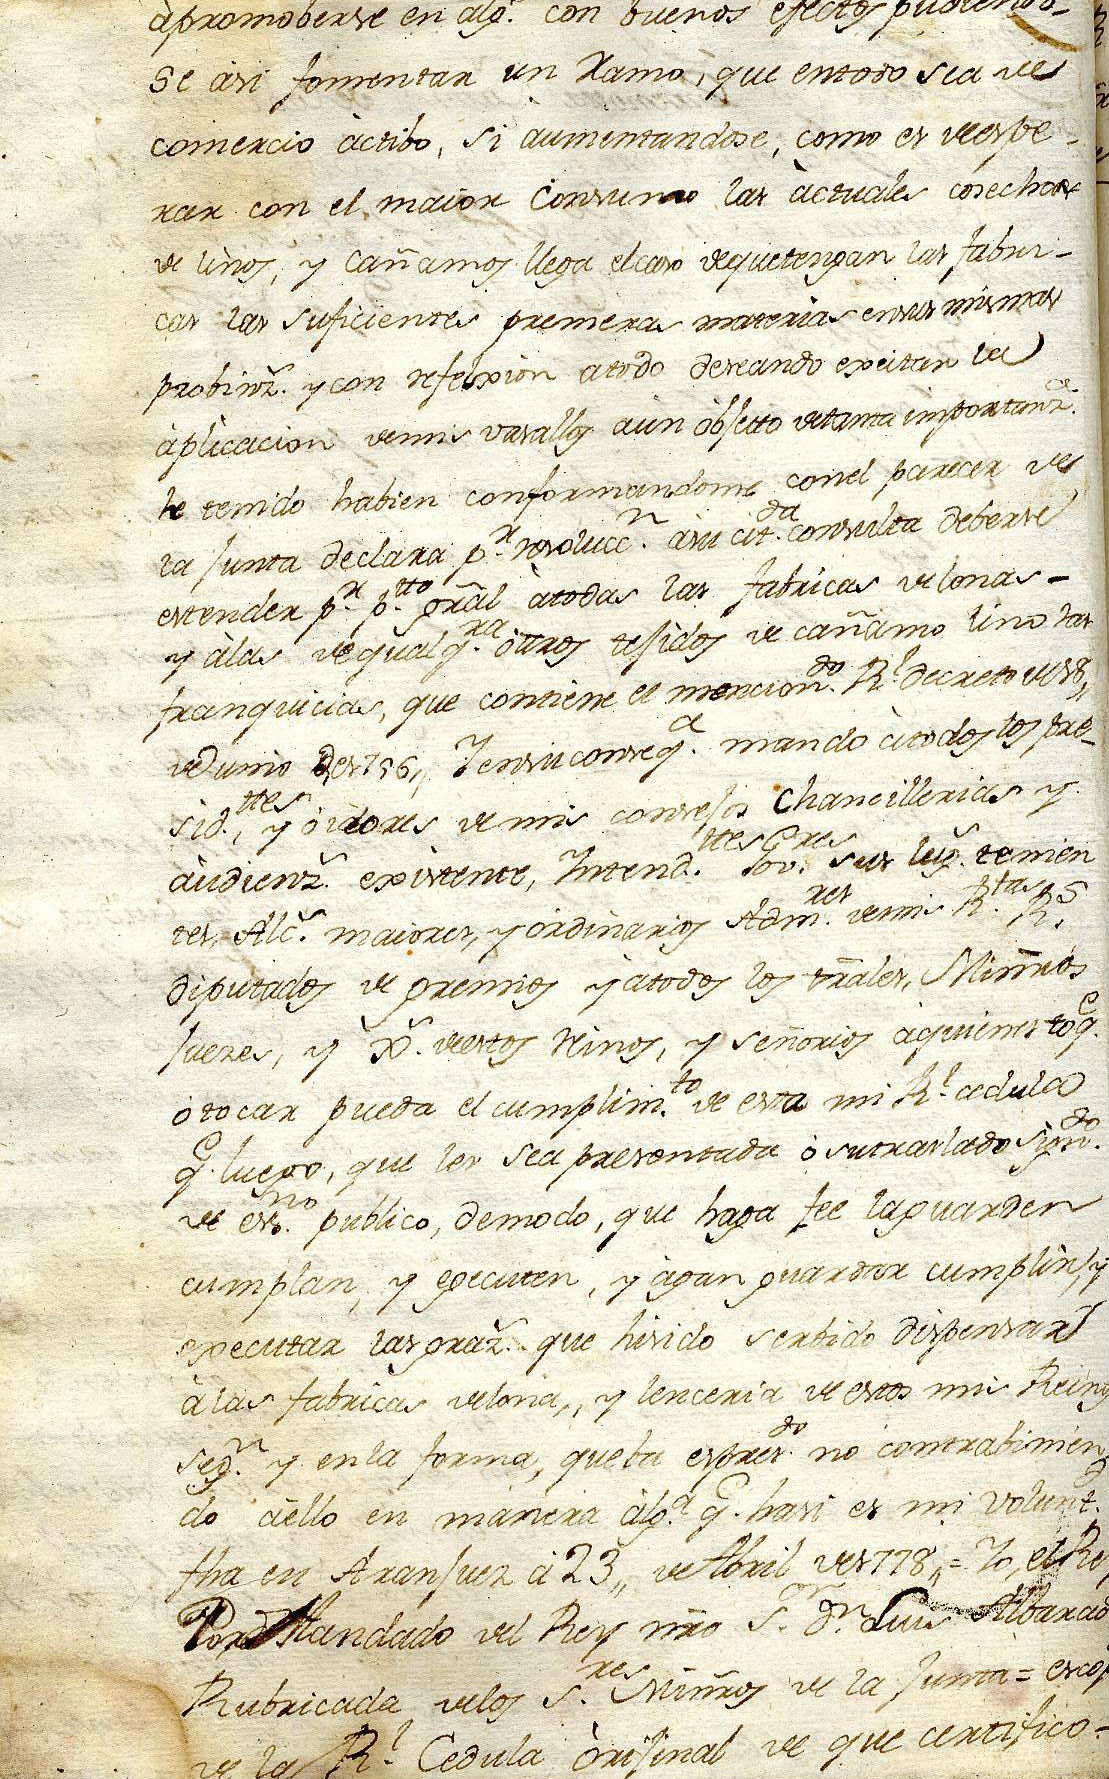 àpromoberse en alg.ª con buenos efectos pudiendo-
se àsi fomentar un Ramo, que entodo sea de
comercio àctibo, si aumentandose, como es deespe-
rar con el maior Consumo las àctuales cosechas
de linos, y Cañamos llega elcaso dequetengan las fabri-
cas las suficientes primeras materias ensus mismas
probinz.ˢ y con reflexion atodo deseando excitar la
àplicacion demis vasallos aùn òbjetto detanta importanz.ª
he tenido habien conformandome conel parecer de
la Junta declara p.ʳ resolucc.ⁿ àsu cit.da consulta deberse
estender p.ʳ p.tto gràl àtodas las fabricas delonas-
y àlas dequalq.ra òtros tejidos de cañamo lino las
franquicias, que contiene el mencion.do R.ˡ decreto de 18,,
deJunio de1756,, Y ensuconseq.ª mando àtodos los pre-
sid.ttes, y òidores de mis consejos Chancillerias y
àudienz.ˢ existente, Intend.ttes Gov.res sus lug.ˢ tenien
tes, Alc.ˢ maiores, y òrdinarios Adm.res demis R.tas R.ˢ
diputados de gremios yatodos los trãles, Minrõs
Juezes, y Xˢ. deestos Reinos, y señorios àquienes toq.e
òtocar pueda el cumplim.to de esta mi R.ˡ cedula
q.e luego, que les sea presentada ò sutraslado sign.do
de ess.no publico, demodo, que haga fee laguarden
cumplan, y egecuten, y àgan guardar cumplir, y
executar lasgraz.ˢ que hesido serbido dispensar
àlas fabricas delona,, y lenceria de estos mis Reinos
seg.ⁿ y en la forma, queba espres.do no contrabinien
do àello en manera àlg.ª q.e hasi es mi volunt.d
fha en Aranjuez à 23,, de Abril de1778,, = Yo, el Rey
Por Mandado del Rey nrõ S.ʳ dⁿ. Luis Albarado
Rubricada delos S.res Minrõs de la Junta = escop
de la R.ˡ Cedula òrijinal de que certifico-